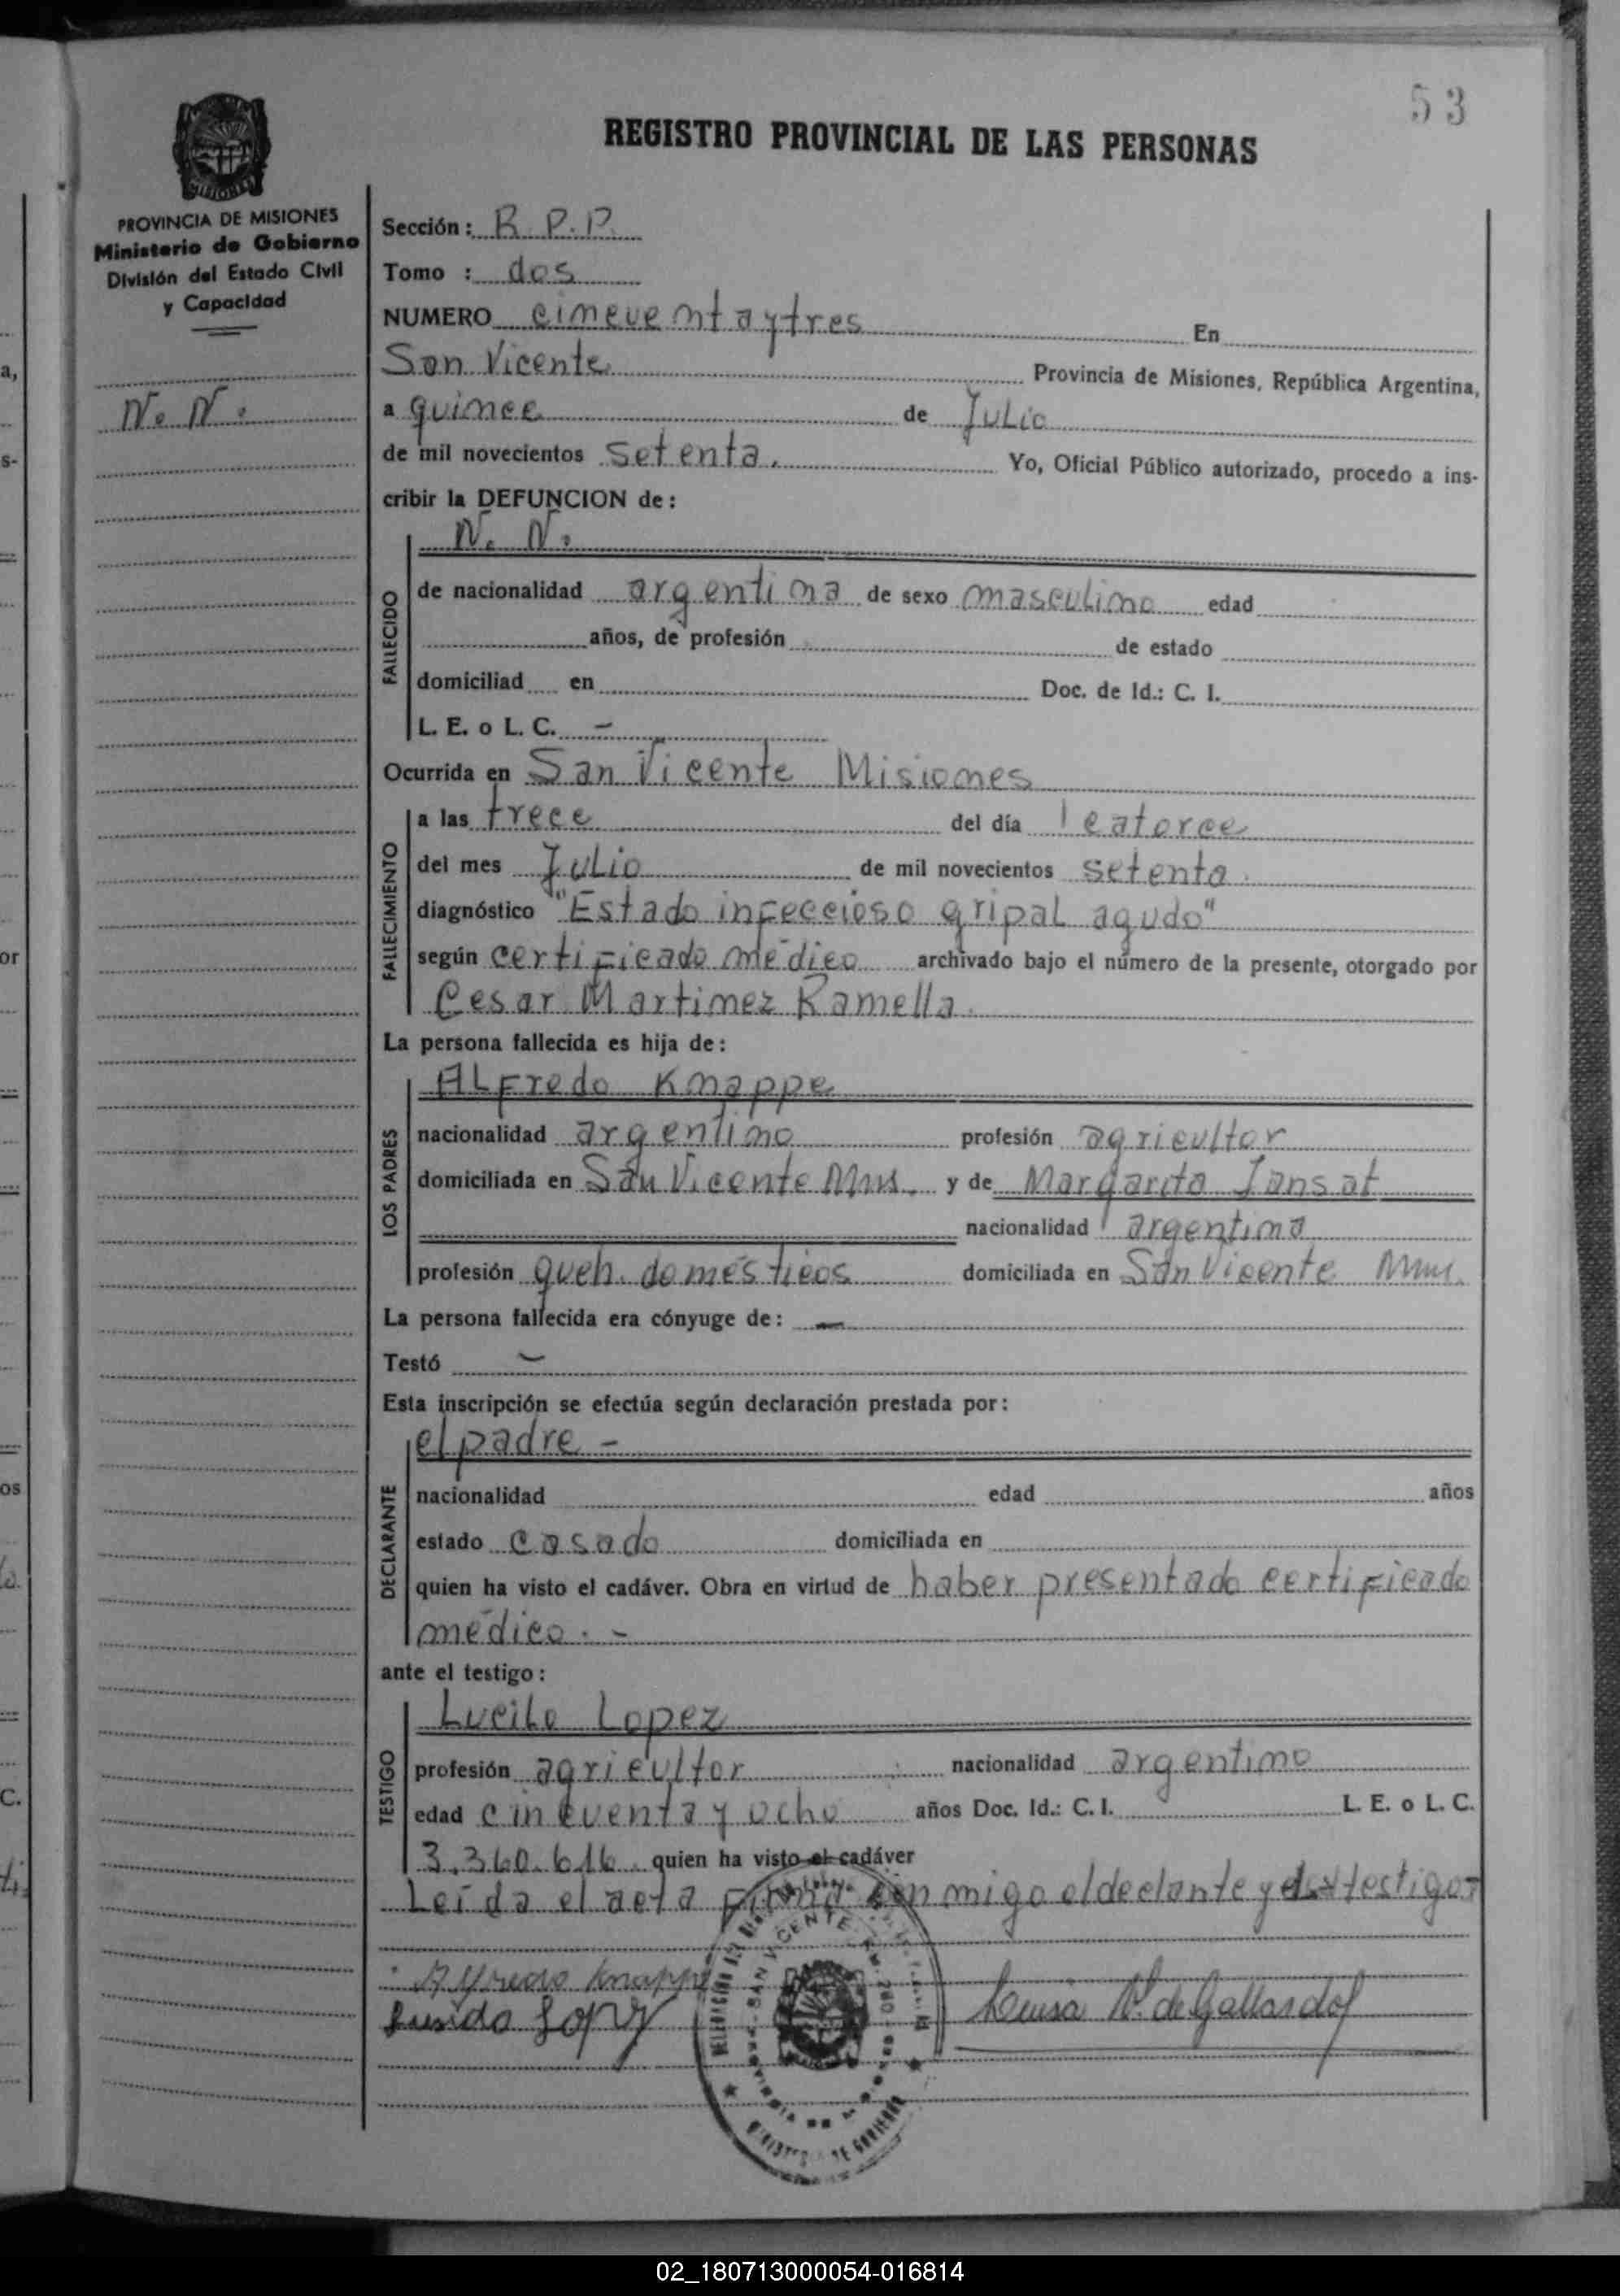 53
REGISTRO PROVINCIAL DE LAS PERSONAS
MISIONES
PROVINCIA DE MISIONES
Ministerio de Gobierno
División del Estado Civil
y Capacidad
N. N.
Sección: R. P. P.
Tomo : dos
NUMERO cincuentaytres En
San Vicente Provincia de Misiones, República Argentina,
a quince de Julio
de mil novecientos setenta. Yo, Oficial Público autorizado, procedo a ins-
cribir la DEFUNCION de:
N. N.
FALLECIDO
de nacionalidad argentina de sexo masculino edad
años, de profesión de estado
domiciliad en Doc. de Id.: C. I.
L. E. o L. C. -
Ocurrida en San Vicente Misiones
FALLECIMIENTO
a las trece del día catorce
del mes Julio de mil novecientos setenta.
diagnóstico "Estado infeccioso gripal agudo"
según certificado médico archivado bajo el número de la presente, otorgado por
Cesar Martinez Ramella.
La persona fallecida es hija de:
LOS PADRES
ALFredo Knappe
nacionalidad argentino profesión agricultor
domiciliada en San Vicente Mnes. y de Margarita Jansat
nacionalidad argentina
profesión queh. domésticos domiciliada en San Vicente Mnes.
La persona fallecida era cónyuge de: -
Testó -
Esta inscripción se efectúa según declaración prestada por:
DECLARANTE
el padre -
nacionalidad edad años
estado casado domiciliada en
quien ha visto el cadáver. Obra en virtud de haber presentado certificado
médico. -
ante el testigo:
TESTIGO
Lucilo Lopez
profesión agricultor nacionalidad argentino
edad cincuenta y ocho años Doc. Id.: C. I. L. E. o L. C.
3.360.616. quien ha visto el cadáver
Leída el acta firma conmigo el declante y testigo
Alfredo Knappe
Lopez Luisa de Gallardo
SAN VICENTE
MINISTERIO DE GOBIERNO
02_180713000054-016814